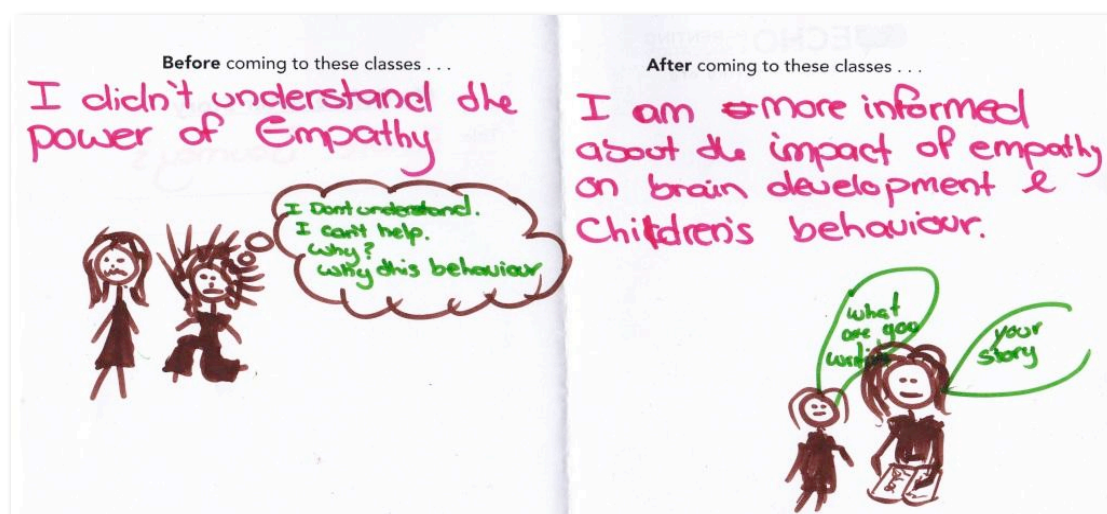 Before coming to these classes . . .
I didn't understand the
power of Empathy
I Dont understand.
I can't help.
Why?
why this behaviour
After coming to these classes . . .
I am more informed
about the impact of empathy
on brain development &
Children's behaviour.
what
are you
writing
your
story